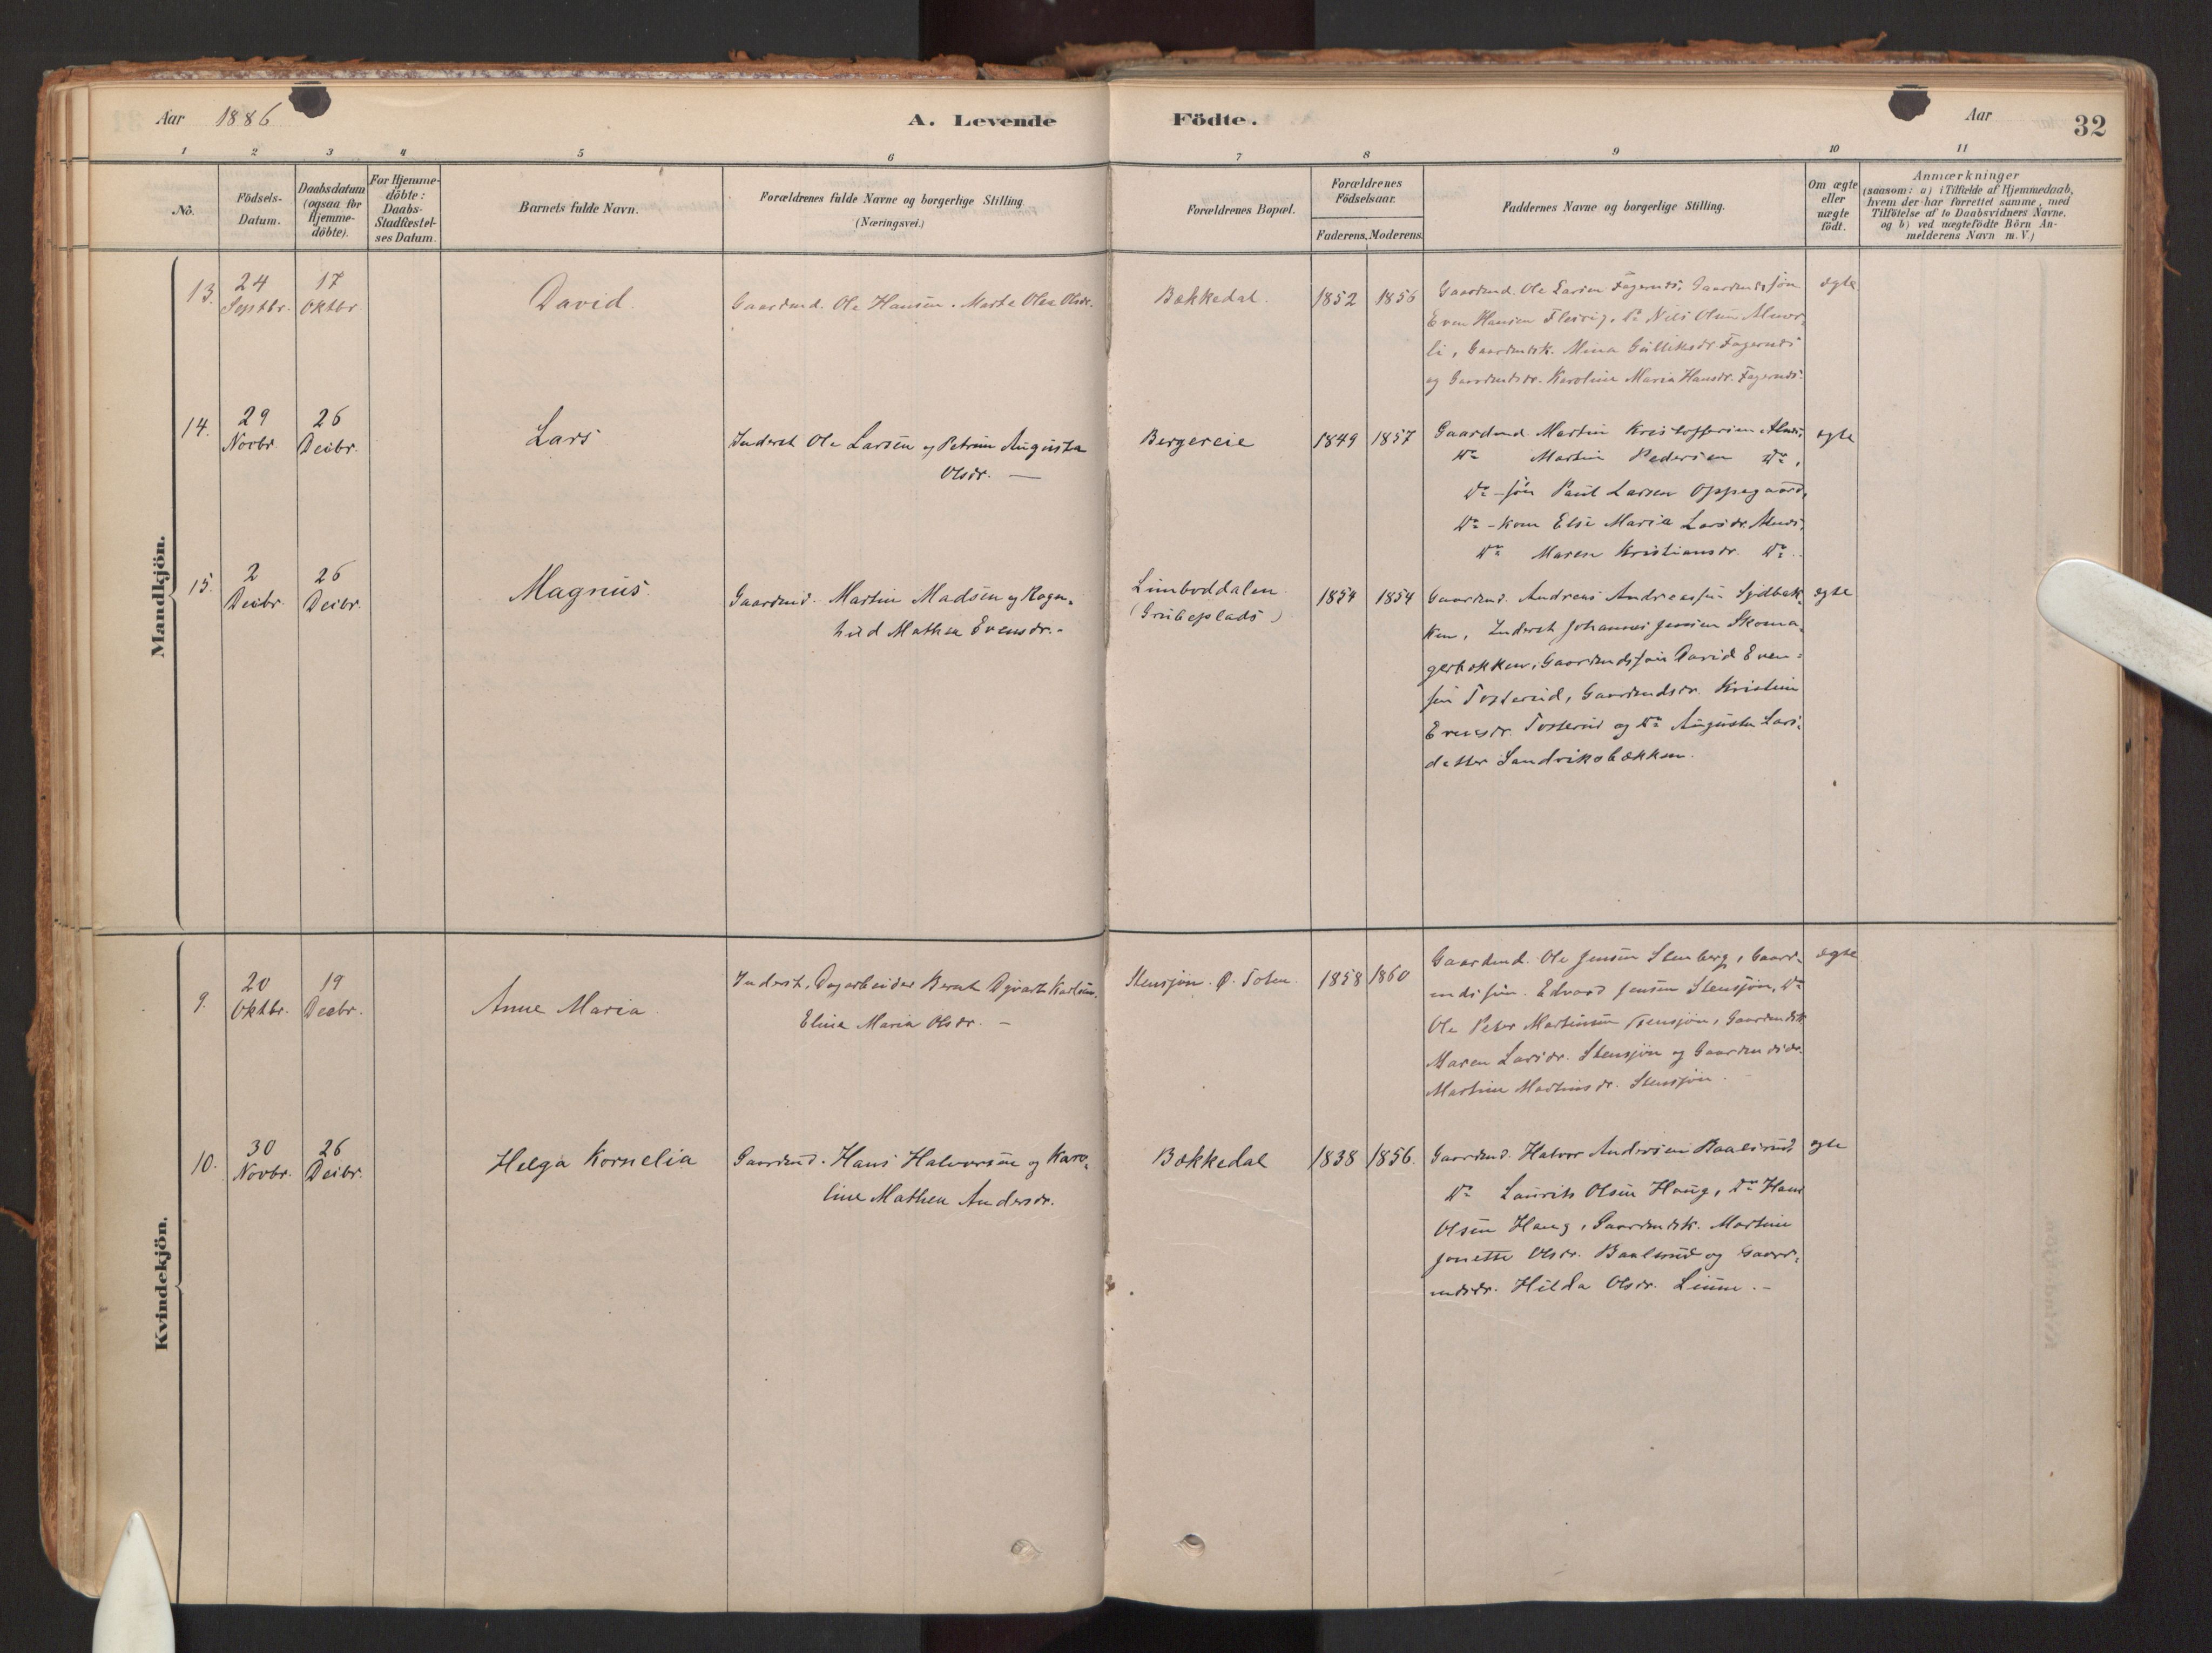 Aar 1886 A. Levende Födte. Aar 32
1 2 3 4 5 6 7 8 9 10 11
No.
Födsels-
Datum.
Daabsdatum
(ogsaa for
Hjemme-
döbte).
For Hjemme-
döbte:
Daabs-
Stadfæstel-
ses Datum.
Barnets fulde Navn.
Forældrenes fulde Navne og borgerlige Stilling
(Næringsvei.)
Forældrenes Bopæl.
Forældrenes
Födselsaar.
Faderens. Moderens.
Faddernes Navne og borgerlige Stilling.
Om ægte
eller
uægte
födt.
Anmærkninger
(saasom: a) i Tilfælde af Hjemmedaab,
hvem der har forrettet samme, med
Tilföielse af to Daabsvidners Navne,
og b) ved uægtefödte Börn An-
melderens Navn m. V.)
Mandkjön.
13. 24 Septbr. 17 Oktbr. David. Gaardmd. Ole Hansen. Marte Olea Olsdr. Bækkedal. 1852 1856 ægte
Gaardmd. Ole Larsen Fagernæs, Gaardmdssøn
Even Hansen, Do Nils Olsen
li, Gaardmdsk. Mina Gulliksdr. Fagernæs
og Gaardmdsdr. Karoline Maria Hansdr. Fagernæs.
14. 29 Novbr. 26 Decbr. Lars Inderst Ole Larsen og Petrine Augusta
Olsdr. —
Bergereie 1849 1857 ægte
Gaardmd. Martin Kristoffersen Alnæs,
Do Martin Pedersen Do,
Do-søn Paul Larsen Oppegaard,
Do-kone Else Maria Larsdr. Alnæs,
Do Maren Kristiansdr. Do.
15. 2 Decbr. 26 Decbr. Magnus. Gaardmd. Martin Madsen og Ragn-
hild Mathea Evensdr.-
Limboddalen
(Grubeplads)
1854 1854 ægte
Gaardmd. Andreas Andreassen Sydbak-
ken, Inderst Johannes Jensen Skoma-
gerbakken, Gaardmdssøn David Even-
sen Tosterud, Gaardmdsdr. Kristine
Evensdr. Tosterud og Do Augusta Lars-
datter Sandviksbækken.
Kvindekjön.
9. 20 Oktbr. 19 Decbr. Anne Maria. Inderst, Dagarbeider Bernt Karlsen.
Eline Maria Olsdr. –
Stensjøn. Ø. Toten. 1858 1860 ægte
Gaardmd. Ole Jensen Stenberg, Gaard-
mdssøn. Edvard Jensen Stensjøn, Do
Ole Peter Martinsen Stensjøn, Gaardmdsk.
Maren Larsdr. Stensjøn og Gaardmdsdr.
Martine Martinsdr. Stensjøn.
10. 30 Novbr. 26 Decbr. Helga Kornelia Gaardmd. Hans Halvorsen og Karo-
line Mathea Andersdr.
Bækkedal 1838 1856. ægte
Gaardmd. Halvor Andersen Baalsrud,
Do Laurits Olsen Haug, Do Hans
Olsen Haug, Gaardmdsk. Martine
Jonette Olsdr. Baalsrud og Gaard-
mdsdr. Hilda Olsdr. Linne. –